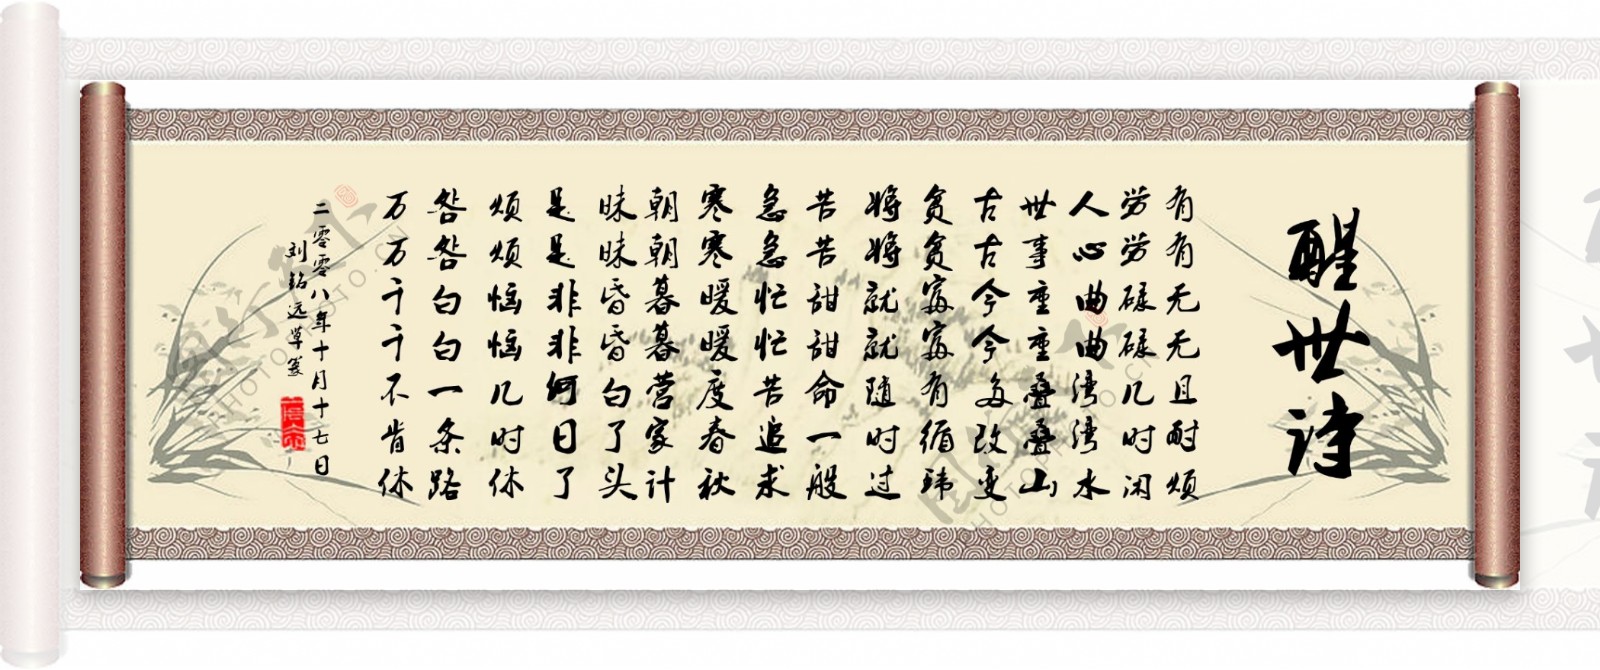 醒世诗
有有无无且耐烦
劳劳碌碌几时闲
人心曲曲湾湾水
世事重重叠叠山
古古今今多改变
贫贫富富有循玮
将将就就随时过
苦苦甜甜命一般
急急忙忙苦追求
寒寒暖暖度春秋
朝朝暮暮营家计
昧昧昏昏白了头
是是非非何日了
烦烦恼恼几时休
咎咎白白一条路
万万千千不肯休
二零零八年十月十七日
刘铭远草